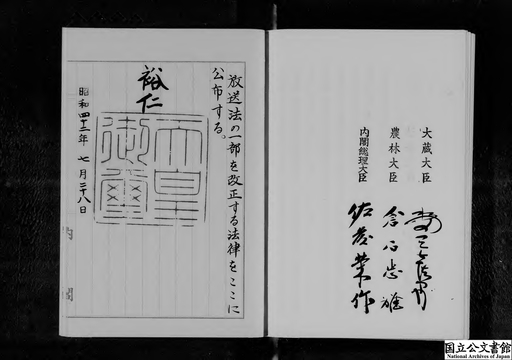 大蔵大臣 水田三喜男
農林大臣 倉石忠雄
内閣総理大臣 佐藤榮作
放送法の一部を改正する法律をここに
公布する。
裕仁
天皇
御璽
昭和四十二年 七月二十八日
内 閣
国立公文書館
National Archives of Japan